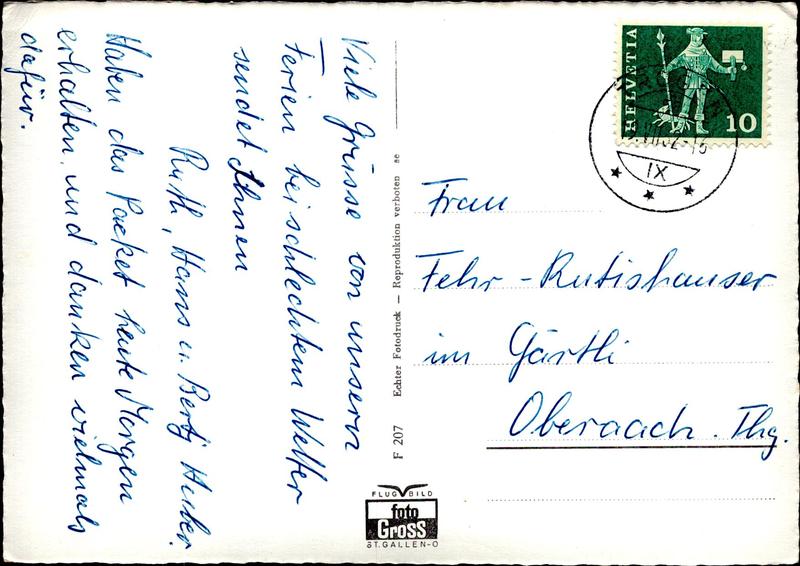 Viele Grüsse von unsern
Ferien bei schlechtem Wetter
sendet Ihnen
Ruth, Hans u. Berty Huber.
Haben das Packet heute Morgen
erhalten, und danken vielmals
dafür.
F 207 Echter Fotodruck — Reproduktion verboten se
FLUG BILD
foto
Gross
ST. GALLEN-O
HELVETIA
10
IX
Frau
Fehr-Rutishauser
im Gärtli
Oberaach. Thg.